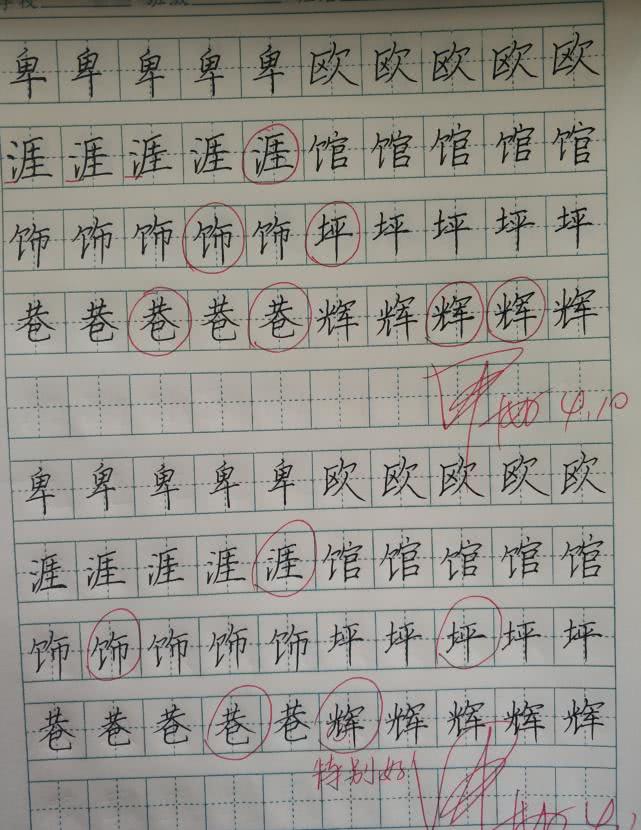 卑卑卑卑卑欧欧欧欧欧
涯涯涯涯涯馆馆馆馆馆
饰饰饰饰饰坪坪坪坪坪
巷巷巷巷巷辉辉辉辉辉
4.10
卑卑卑卑卑欧欧欧欧欧
涯涯涯涯涯馆馆馆馆馆
饰饰饰饰饰坪坪坪坪坪
巷巷巷巷巷辉辉辉辉辉
特别好